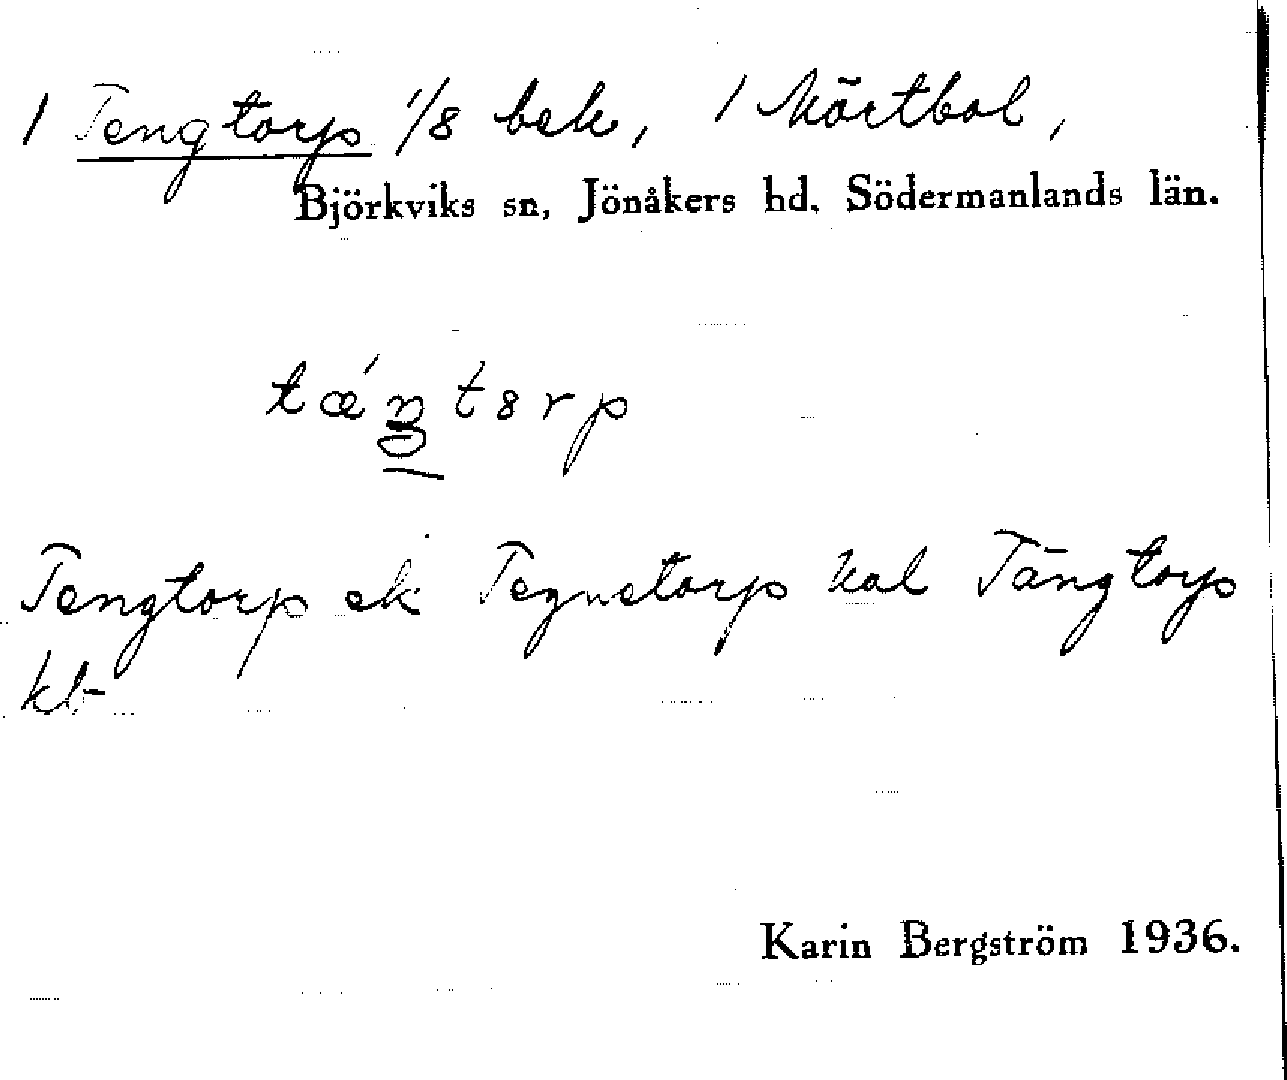 / Tengtorp 1/8 bek, / Mörtbol,
Björkviks sn, Jönåkers hd. Södermanlands län.
tæ´ŋtɜrp
Tengtorp ek Tegnetorp kal Tängtorp
kb
Karin Bergström 1936.